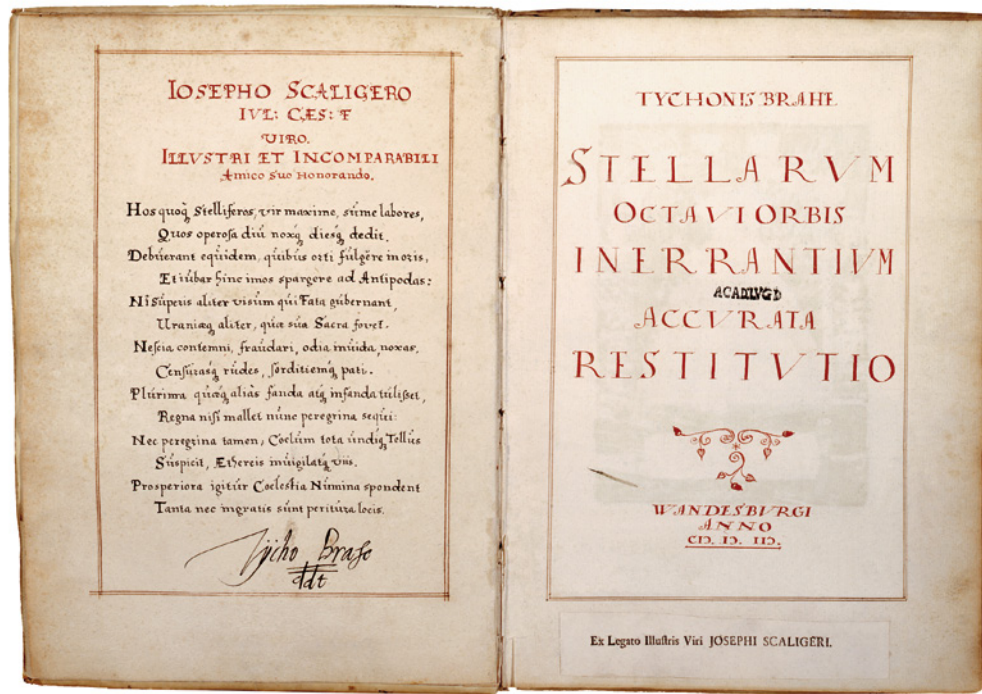 IOSEPHO SCALIGERO
IVL: CÆS: F
VIRO.
ILLVSTRI ET INCOMPARABILI
Amico suo Honorando.
Hos quoq́ Stelliferos, vir maxime, súme labores,
Quos operosa diú noxq́ diesq́ dedit.
Debúerant eqúidem, qúibús orti fúlgêre in oris,
Et iúbar hinc imos spargere ad Antipodas:
Ni Súperis aliter visúm qúi Fata gúbernant,
Uraniæq́ aliter, qúæ súa Sacra fovet.
Nescia contemni, fraúdari, odia inúida, noxas,
Censúrasq́ rúdes, sorditiemq́ pati.
Plúrima qúæq́ aliàs fanda atq́ infanda túlisset,
Regna nisi mallet núnc peregrina seqúi:
Nec peregrina tamen, Coelúm tota úndiq́ Tellús
Súspicit, Æthereis inúigilatq́ viis.
Prosperiora igitúr Coelestia Númina spondent
Tanta nec ingratis súnt peritúra locis.
Tycho Brahe
ddt
TYCHONIS BRAHE
STELLARVM
OCTAVI ORBIS
INERRANTIVM
ACADLVGD
ACCVRATA
RESTITVTIO
WANDESBVRGI
ANNO
CIↃ. IↃ. IIC.
Ex Legato Illuſtris Viri JOSEPHI SCALIGERI.